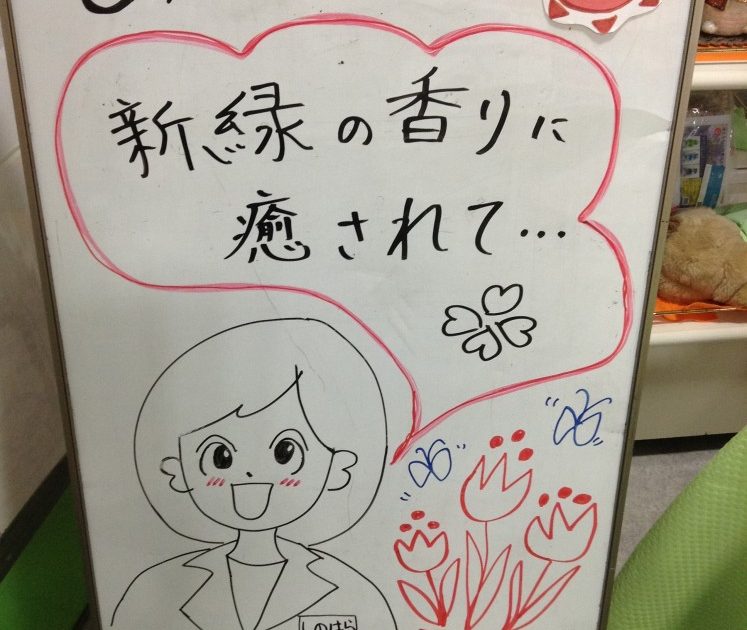 新緑の香りに
癒されて…
しのはら